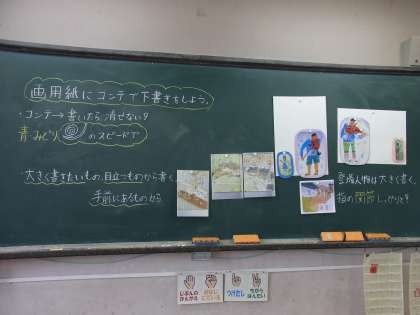 画用紙にコンテで下書きをしよう。
・コンテ→書いたら消せない!!
青みどり のスピードで
・大きく書きたいもの、目立つものから書く。
手前にあるものから
登場人物は大きく書く。
指の関節しっかりと!!
じぶんの
かんがえ
おなじ
にている
つけたし
ちがう
はんたい